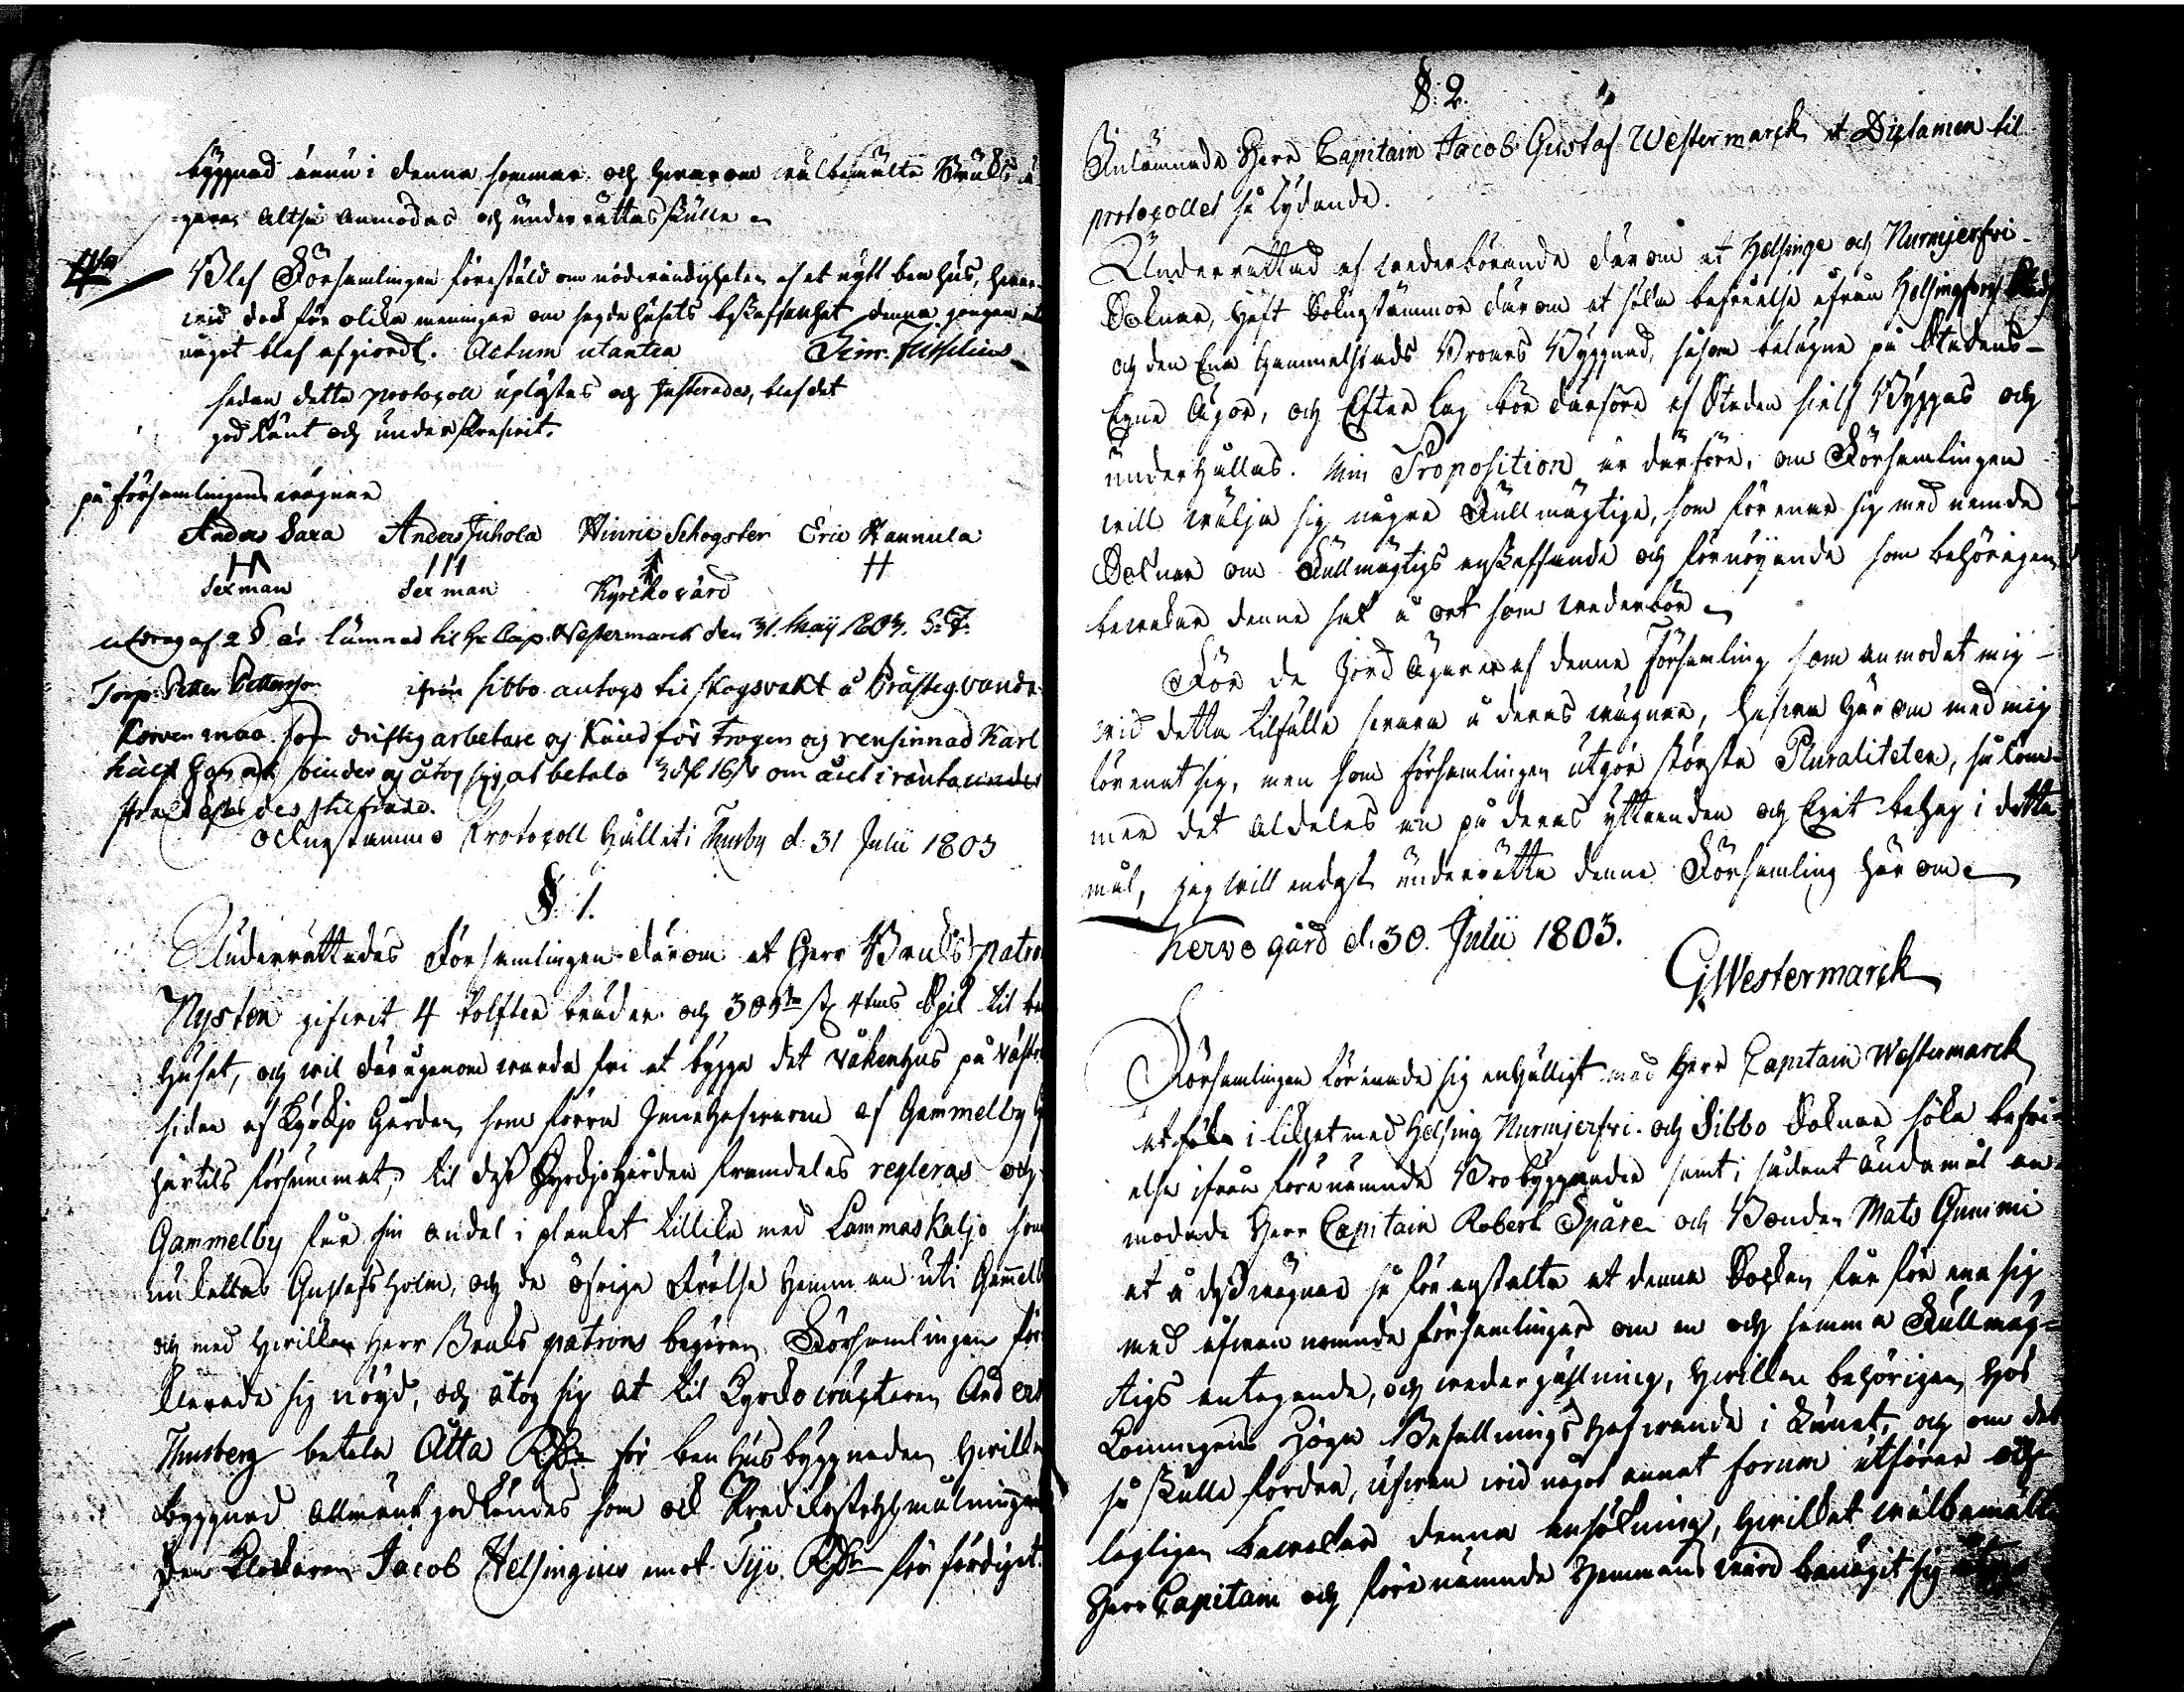 byggnad ännu i denna sommar och herar om wälbemälte Bruks ä-
garen altså anmodas och underrättas skulle
4to
Blef Församlingen förestäld om nödwändigheten af et nytt benhus, herar-
wid dock för olika meningar om sagde husets beskaffenhet denna gången ei
något blef afgiordt. Actum ut antea
sedan detta protocoll uplystes och Justerades, blef det
god känt och underskrefwit.
på församlingens wägnar
Anders Saxa Anders Juhola Hinric Schogster Eric Hannula
Sexman Sex man Kyrckovärd
utdrag af 2 §. är lämnad til Hr Cap. Westermarck den 31. Maij 1803.
Torp. Petter Pettersson ifrån Sibbo antogs til skogsvakt å Prästeg.
Korven maa som driftig arbetare og känd för trogen og rensinnad Karl
och åtog sig at betala 3 Rdr 16 s om året i ränta
des tilträde.
Sockne stämmo Protocoll hållet i Thusby d. 31 Julii 1803
§. 1.
Underrättades Församlingen därom at Herr Bruks patron
Nysten gifwit 4 tolfter bräder och 300 st 4 tums Spik til ben
huset, och wil därigenom warda fri at bygga det våkenhus på västra
sidan af Kyrckjo Gården, som förra Innehafwaren af Gammelby
härtils försummat, til dess Kyrckjogården framdeles regleras och
Gammelby får sin andel i planket tillika med Lammaskaljo som
nu kallas Gustafsholm, och de öfriga Frälse Hemman uti Gammelby
och med hwilken Herr Bruks patrons begäran Församlingen för
klarade sig nöyd, och åtog sig at til Kyrckowäktaren Anders
Thusberg betala Åtta Rdr för benhus byggnaden, hwilken
byggnad allmänt godkändes som ock Predikostols målningen
den Klockaren Jacob Helsingius emot Tijo Rdr för färdigat.
§. 2.
Inlämnade Herr Capitain Jacob Gustaf Westermarck et Dictamen til
protocollet så lydande.
Underrättad af wederbörande därom at Helsinge och Nurmjerfvi
Soknar, haft Soknestämmor därom at söka befrielse ifrån Helsingfors Stads
och den Ena Gammelstads Broars Byggnad, såsom belägne på Stadens
Egne Ägor, och Efter Lag bör därföre af Staden sielf Byggas och
underhållas. Min Proposition är därföre, om Församlingen
will wälja sig någre Fullmägtige, som förenar sig med nemde
Soknar om Fullmägtigs anskaffande och förnöyande som behörigen
bewakar denne sak å ort som wederbör
För de Jord ägarer af denna Församling som anmodat mig
wid detta tilfälle swara å deras wägnar, hafwa här om med mig
förenat sig, men som församlingen utgör största Pluraliteten, så kom-
mer det aldeles an på deras yttranden och Eget behag i detta
mål, jag will endast underrätta denne Församling här om
Kervo gård d. 30. Julii 1803.
G Westermarck
Församlingen förenade sig enhälligt med Herr Capitain Westermarck
at söka i likhet med Helsing Nurmjerfvi och Sibbo Soknar söka befri-
else ifrån förenämnde Brobyggnader samt i sådant ändamål an-
modade Herr Capitain Robert Spåre och Bonden Mats Gummi
at å dess wägnar så föranstalta at denna Socken får förena sig
med ofwan nämnde församlingar om en och samma Fullmäg-
tigs antagande, och wedergällning, hwilken behörigen hos
Konungens Höga Befallningshafwande i Länet, och om det
så skulle fordra, äfwen wid något annat forum utförer och
lagligen bewakar denna ansökning, hwilket wälbemälte
Herr Capitain och förenämnde Hemmans wärd benägit sig åtogo